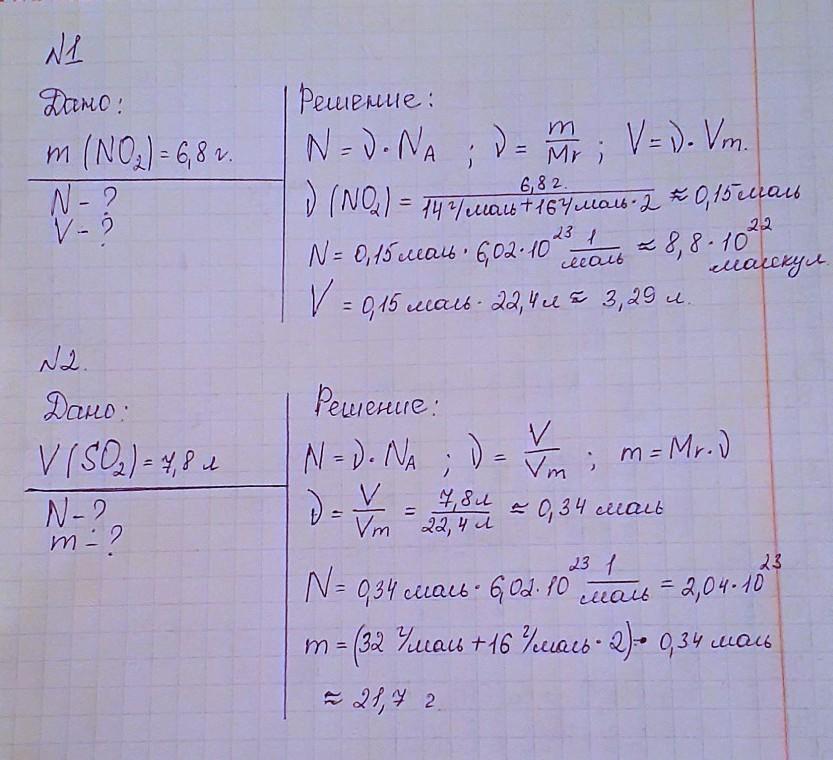 N1
Дано:
m (NO₂) = 6,8 г.
N - ?
V - ?
Решение:
N = ν · N_A ; ν = m/Mr ; V = ν · Vm.
ν (NO₂) = 6,8 г. / (14 г/моль + 16 г/моль · 2) ≈ 0,15 моль
N = 0,15 моль · 6,02 · 10²³ 1/моль ≈ 8,8 · 10²² молекул
V = 0,15 моль · 22,4 л ≈ 3,29 л.
N2.
Дано:
V (SO₂) = 7,8 л
N - ?
m - ?
Решение:
N = ν · N_A ; ν = V/Vm ; m = Mr · ν
ν = V/Vm = 7,8 л/22,4 л ≈ 0,34 моль
N = 0,34 моль · 6,02 · 10²³ 1/моль = 2,04 · 10²³
m = (32 г/моль + 16 г/моль · 2) · 0,34 моль
≈ 21,7 г